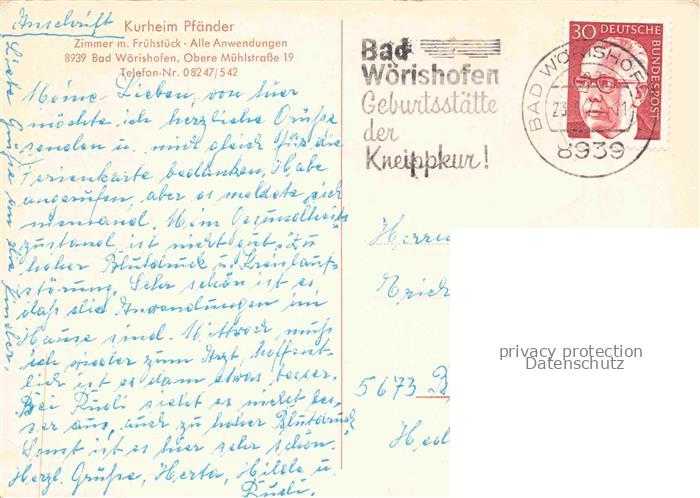 Anschrift
Kurheim Pfänder
Zimmer m. Frühstück · Alle Anwendungen
8939 Bad Wörishofen, Obere Mühlstraße 19
Telefon-Nr. 0 82 47 / 5 42
Meine Lieben, von hier
möchte ich herzliche Grüße
senden u. mich gleich für die
Ferienkarte bedanken. Habe
angerufen, aber es meldete sich
niemand. Mein Gesundheits-
zustand ist nicht gut. Zu
hoher Blutdruck u. Kreislauf-
störung. Sehr schön ist es,
daß die Anwendungen im
Hause sind. Mittwoch muß
ich wieder zum Arzt, hoffent-
lich ist es dann etwas besser.
Bei Rudi sieht es nicht bes-
ser aus, auch zu hoher Blutdruck
Sonst ist es hier sehr schön.
Herzl. Grüße, Herta, Hilde u.
Rudi.
Liebe Grüße an die Kinder.
Bad
Wörishofen
Geburtsstätte
der
Kneippkur!
BAD WÖRISHOFEN
23.
8939
30 DEUTSCHE
BUNDESPOST
5673 B
privacy protection
Datenschutz